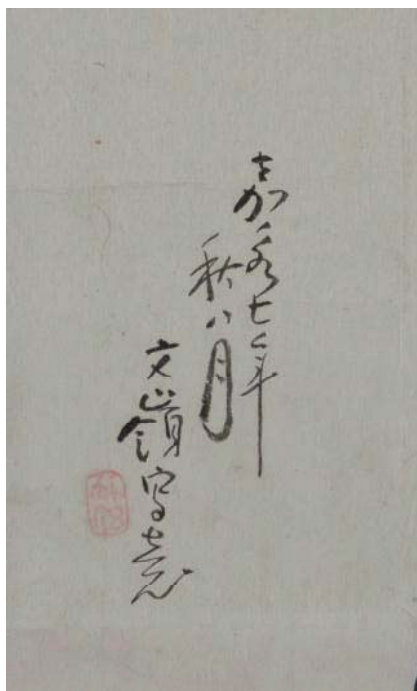 嘉永七年
秋八月
文嶺寫意